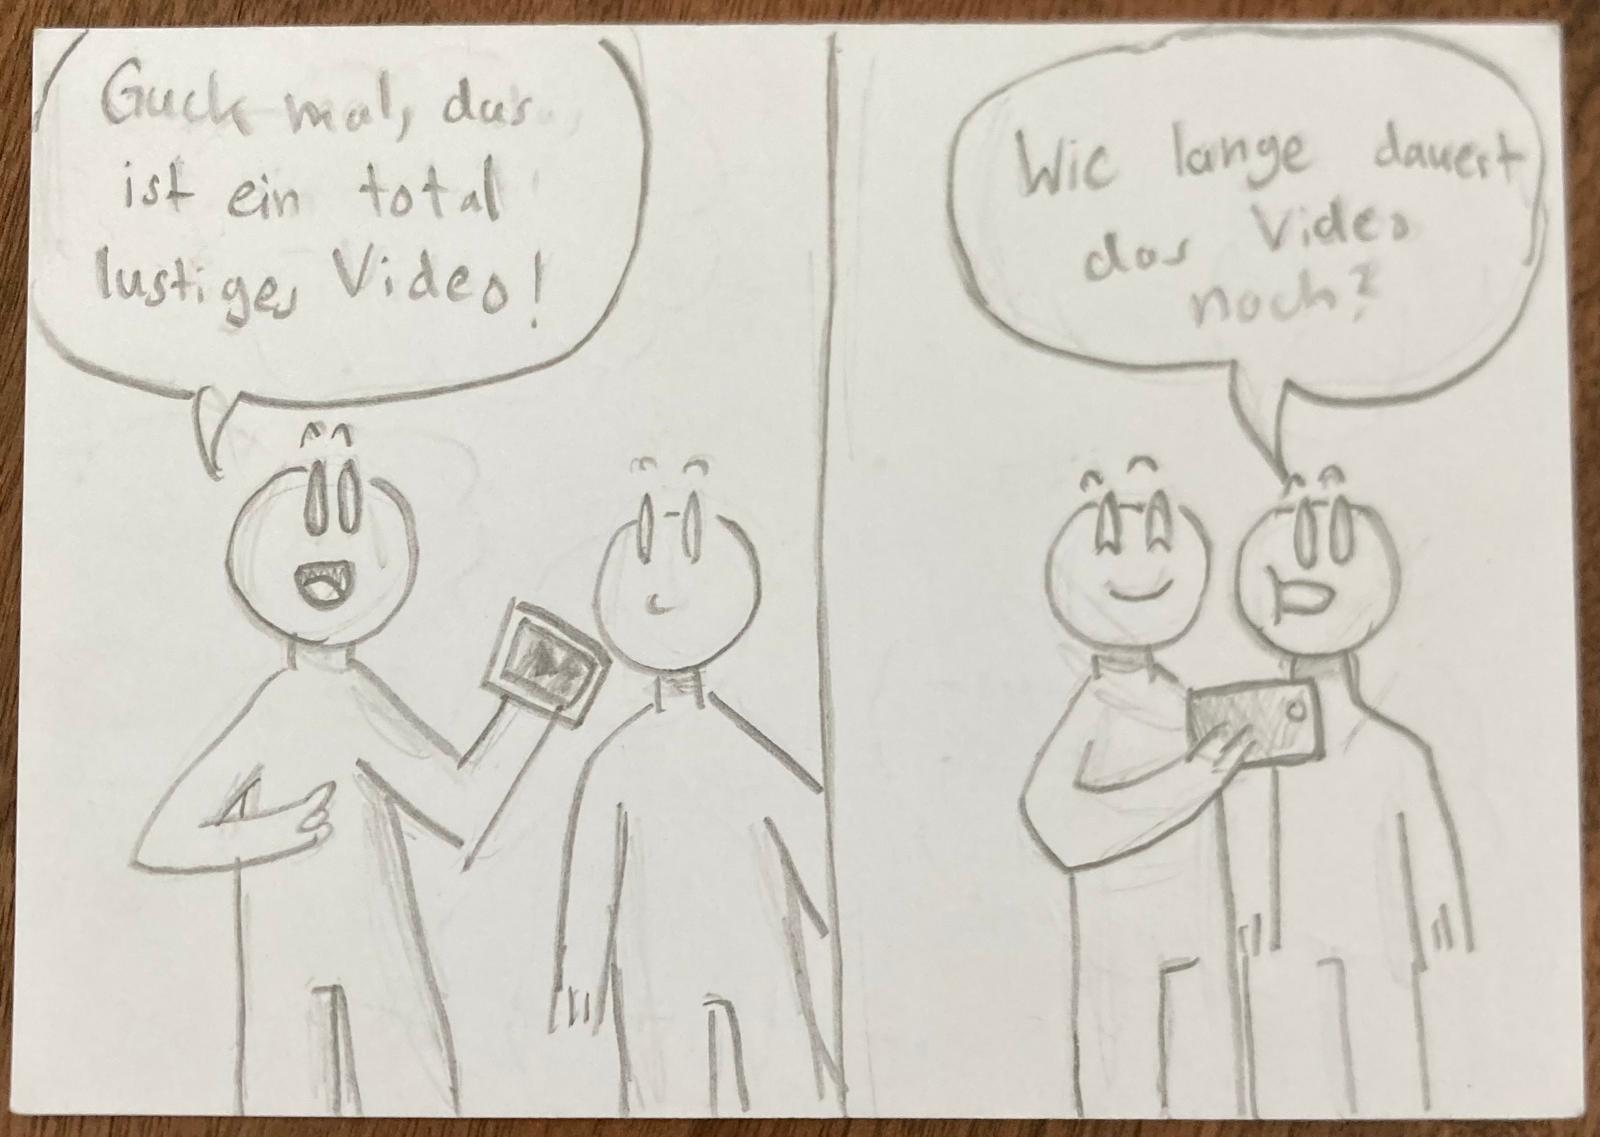 Guck mal, das
ist ein total
lustiges Video!
Wie lange dauert
das Video
noch?